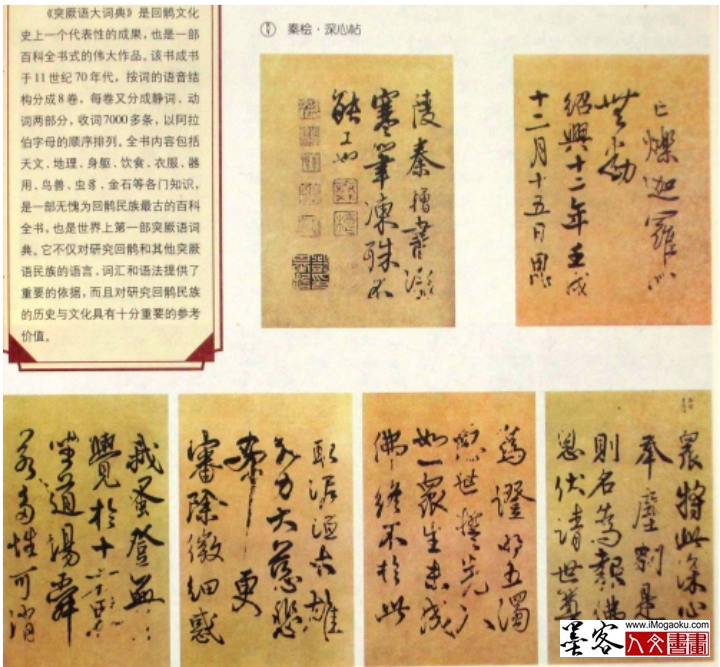 《突厥语大词典》是回鹘文化
史上一个代表性的成果，也是一部
百科全书式的伟大作品。该书成书
于11世纪70年代，按词的语音结
构分成8卷，每卷又分成静词、动
词两部分，收词7000多条，以阿拉
伯字母的顺序排列。全书内容包括
天文、地理、身躯、饮食、衣服、器
用、鸟兽、虫豸、金石等各门知识，
是一部无愧为回鹘民族最古的百科
全书，也是世界上第一部突厥语词
典。它不仅对研究回鹘和其他突厥
语民族的语言、词汇和语法提供了
重要的依据，而且对研究回鹘民族
的历史与文化具有十分重要的参考
价值。
秦桧·深心帖
亡爍迦羅心
無動
紹興十二年壬戌
十二月十五日
陵秦檜書
寒筆凍殊不
能工如
眾將此深心
奉塵刹是
則名為報佛
恩伏請世尊
為證明五濁
惡世誓先入
如一眾生未成
佛終不於此
取泥洹大雄
大力大慈悲
希更
審除微細惑
我蚤登無上
覺於十方界
坐道場舜
若多性可消
墨客
www.iMogaoku.com
人文書畫